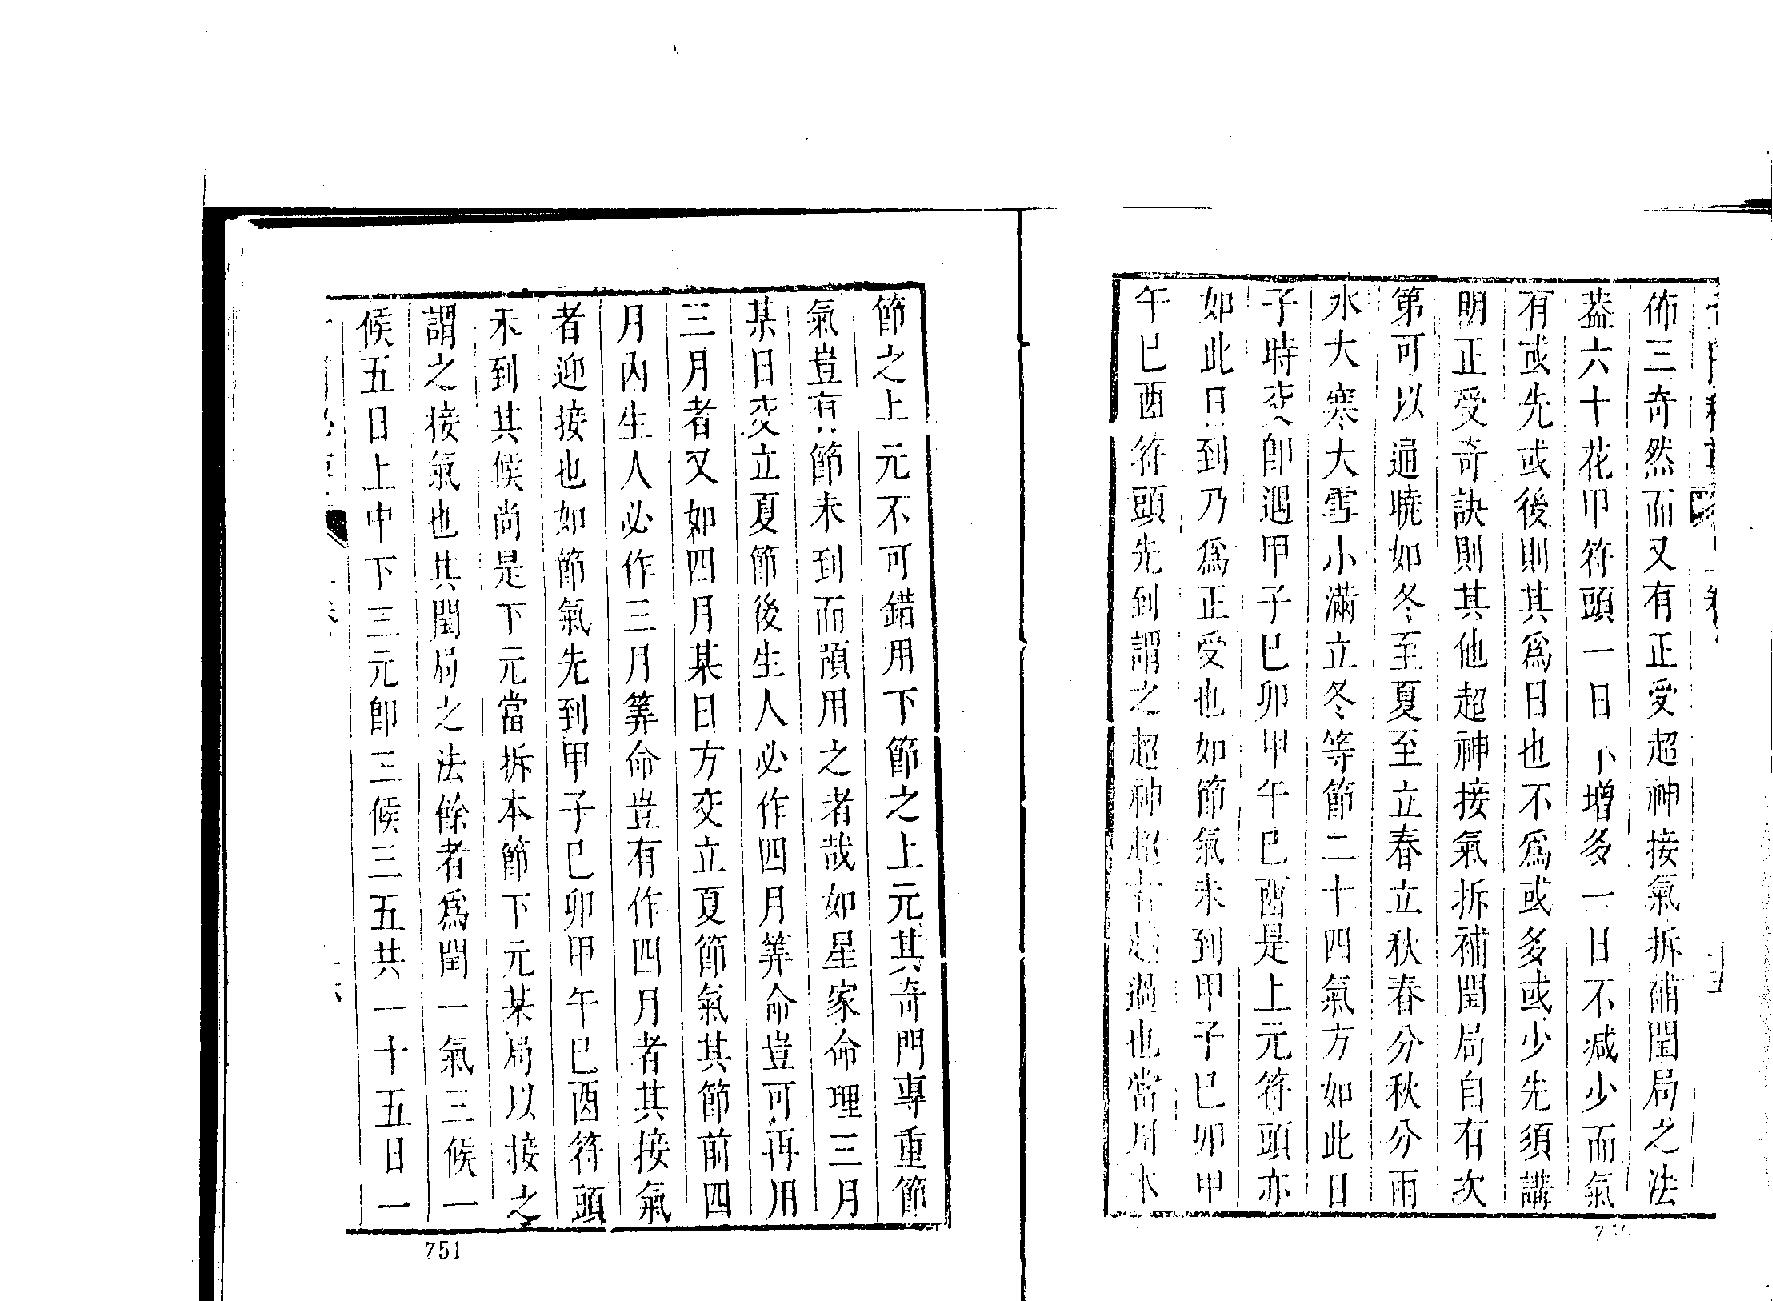 佈三奇然而又有正受超神接氣拆補閏局之法
葢六十花甲符頭一日不增多一日不減少而氣
有或先或後則其爲日也不爲或多或少先須講
明正受奇訣則其他超神接氣拆補閏局自有次
第可以通曉如冬至夏至立春立秋春分秋分雨
水大寒大雪小滿立冬等節二十四氣方如此日
子時交卽遇甲子己卯甲午己酉是上元符頭亦
如此日到乃爲正受也如節氣未到甲子己卯甲
午己酉符頭先到謂之超神超者超過也當用本
節之上元不可錯用下節之上元其奇門專重節
氣豈有節未到而預用之者哉如星家命理三月
某日交立夏節後生人必作四月筭命豈可再用
三月者又如四月某日方交立夏節氣其節前四
月內生人必作三月筭命豈有作四月者其接氣
者迎接也如節氣先到甲子己卯甲午己酉符頭
未到其候尚是下元當拆本節下元某局以接之
謂之接氣也其閏局之法餘者爲閏一氣三候一
候五日上中下三元卽三候三五共一十五日一
751